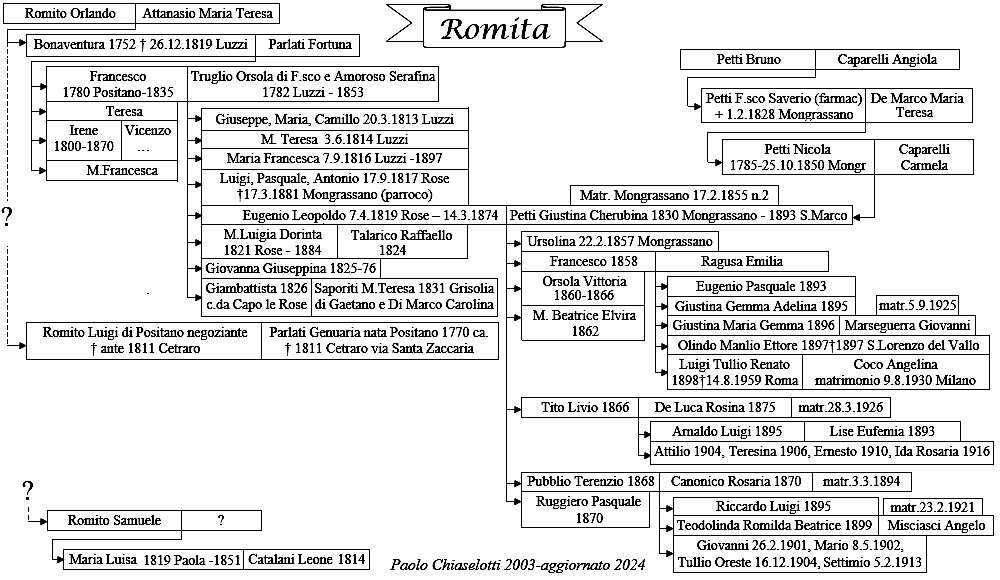 Romita
Romito Orlando
Attanasio Maria Teresa
Bonaventura 1752 † 26.12.1819 Luzzi
Parlati Fortuna
Francesco
1780 Positano-1835
Truglio Orsola di F.sco e Amoroso Serafina
1782 Luzzi - 1853
Teresa
Irene
1800-1870
Vicenzo
...
M.Francesca
Giuseppe, Maria, Camillo 20.3.1813 Luzzi
M. Teresa 3.6.1814 Luzzi
Maria Francesca 7.9.1816 Luzzi -1897
Luigi, Pasquale, Antonio 17.9.1817 Rose
†17.3.1881 Mongrassano (parroco)
Petti Bruno
Caparelli Angiola
Petti F.sco Saverio (farmac)
+ 1.2.1828 Mongrassano
De Marco Maria
Teresa
Petti Nicola
1785-25.10.1850 Mongr
Caparelli
Carmela
Matr. Mongrassano 17.2.1855 n.2
Eugenio Leopoldo 7.4.1819 Rose – 14.3.1874
Petti Giustina Cherubina 1830 Mongrassano - 1893 S.Marco
?
M.Luigia Dorinta
1821 Rose - 1884
Talarico Raffaello
1824
Giovanna Giuseppina 1825-76
Giambattista 1826
c.da Capo le Rose
Saporiti M.Teresa 1831 Grisolia
di Gaetano e Di Marco Carolina
Romito Luigi di Positano negoziante
† ante 1811 Cetraro
Parlati Genuaria nata Positano 1770 ca.
† 1811 Cetraro via Santa Zaccaria
Ursolina 22.2.1857 Mongrassano
Francesco 1858
Ragusa Emilia
Orsola Vittoria
1860-1866
M. Beatrice Elvira
1862
Eugenio Pasquale 1893
Giustina Gemma Adelina 1895
matr.5.9.1925
Giustina Maria Gemma 1896
Marseguerra Giovanni
Olindo Manlio Ettore 1897†1897 S.Lorenzo del Vallo
Luigi Tullio Renato
1898†14.8.1959 Roma
Coco Angelina
matrimonio 9.8.1930 Milano
Tito Livio 1866
De Luca Rosina 1875
matr.28.3.1926
Arnaldo Luigi 1895
Lise Eufemia 1893
Attilio 1904, Teresina 1906, Ernesto 1910, Ida Rosaria 1916
Pubblio Terenzio 1868
Canonico Rosaria 1870
matr.3.3.1894
Ruggiero Pasquale
1870
Riccardo Luigi 1895
matr.23.2.1921
Teodolinda Romilda Beatrice 1899
Misciasci Angelo
Giovanni 26.2.1901, Mario 8.5.1902,
Tullio Oreste 16.12.1904, Settimio 5.2.1913
?
Romito Samuele
?
Maria Luisa 1819 Paola -1851
Catalani Leone 1814
Paolo Chiaselotti 2003-aggiornato 2024